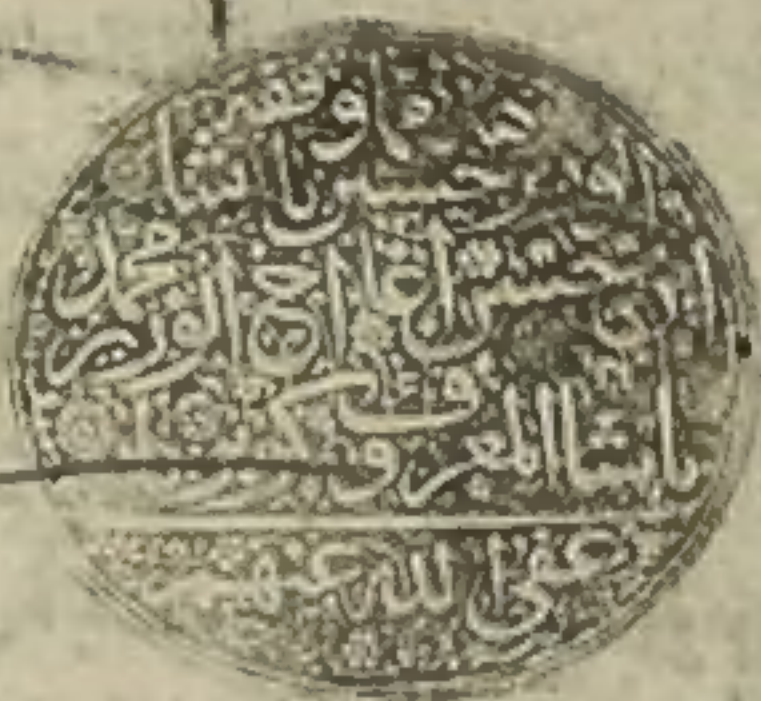 هذا ما وقفه
الوزير حسين باشا
ابن حسن اغا اخ الوزير محمد
باشا المعروف
عفى الله عنهم